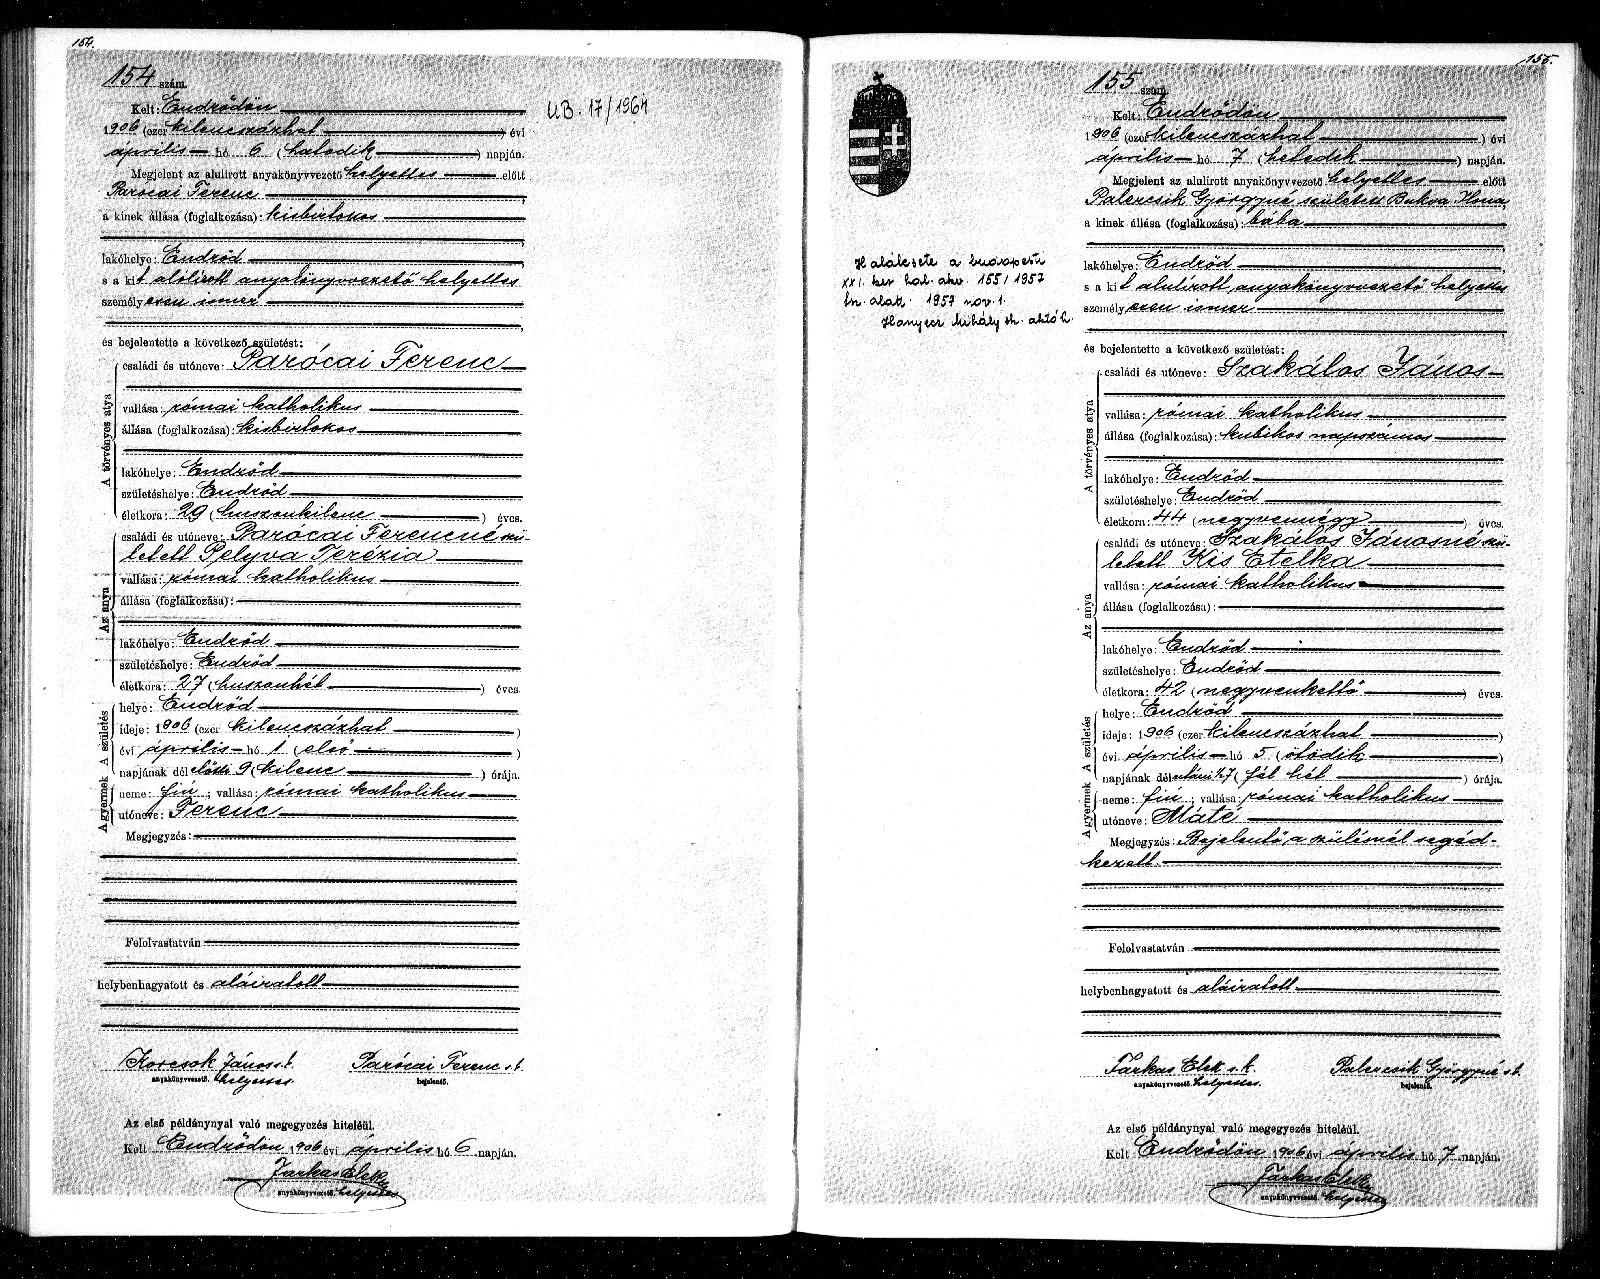 154.
154 szám.
Kelt: Endrődön
1906 (ezer kilencszázhat) évi
április hó 6 (hatodik) napján.
Megjelent az alulirott anyakönyvvezető helyettes előtt
Parócai Ferenc
a kinek állása (foglalkozása): kisbirtokos
lakóhelye: Endrőd
s a kit alólirott anyakönyvvezető helyettes
személyesen ismer
és bejelentette a következő születést:
A törvényes atya
családi és utóneve: Parócai Ferenc
vallása: római katholikus
állása (foglalkozása): kisbirtokos
lakóhelye: Endrőd
születéshelye: Endrőd
életkora: 29 (huszonkilenc) éves.
Az anya
családi és utóneve: Parócai Ferencné szü-
letett Pelyva Terézia
vallása: római katholikus
állása (foglalkozása):
lakóhelye: Endrőd
születéshelye: Endrőd
életkora: 27 (huszonhét) éves.
A születés
helye: Endrőd
ideje: 1906 (ezer kilencszázhat)
évi április hó 1 (első)
napjának délelőtti 9 (kilenc) órája.
A gyermek
neme: fiú; vallása: római katholikus
utóneve: Ferenc
Megjegyzés:
Felolvastatván
helybenhagyatott és aláiratott
Korcsok János s.k. Parócai Ferenc s.k.
anyakönyvvezető. helyettes bejelentő.
Az első példánynyal való megegyezés hiteléül.
Kelt Endrődön 1906 évi április hó 6 napján.
Farkas Elek
anyakönyvvezető. helyettes
UB. 17/1964
155.
155 szám.
Kelt: Endrődön
1906 (ezer kilencszázhat) évi
április hó 7 (hetedik) napján.
Megjelent az alulirott anyakönyvvezető helyettes előtt
Palercsik Györgyné született Bukva Ilona
a kinek állása (foglalkozása): bába
lakóhelye: Endrőd
s a kit alulírott anyakönyvvezető helyettes
személyesen ismer
és bejelentette a következő születést:
A törvényes atya
családi és utóneve: Szakálos János
vallása: római katholikus
állása (foglalkozása): kubikos napszámos
lakóhelye: Endrőd
születéshelye: Endrőd
életkora: 44 (negyvennégy) éves.
Az anya
családi és utóneve: Szakálos Jánosné szü-
letett Kis Etelka
vallása: római katholikus
állása (foglalkozása):
lakóhelye: Endrőd
születéshelye: Endrőd
életkora: 42 (negyvenkettő) éves.
A születés
helye: Endrőd
ideje: 1906 (ezer kilencszázhat)
évi április hó 5 (ötödik)
napjának délutáni ½7 (fél hét) órája.
A gyermek
neme: fiú; vallása: római katholikus
utóneve: Máté
Megjegyzés: Bejelentő a szülésnél segéd-
kezett.
Felolvastatván
helybenhagyatott és aláiratott
Farkas Elek s.k. Palercsik Györgyné s.k.
anyakönyvvezető. helyettes. bejelentő.
Az első példánynyal való megegyezés hiteléül.
Kelt Endrődön 1906 évi április hó 7 napján.
Farkas Elek
anyakönyvvezető. helyettes
Halálesete a budapesti
XXI. ker hal. akv. 155/1957
fn. alatt. 1957 nov. 1.
Hanyecz Mihály sk.